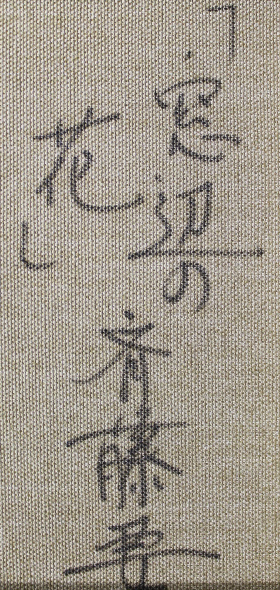 「窓辺の
花」
斉藤